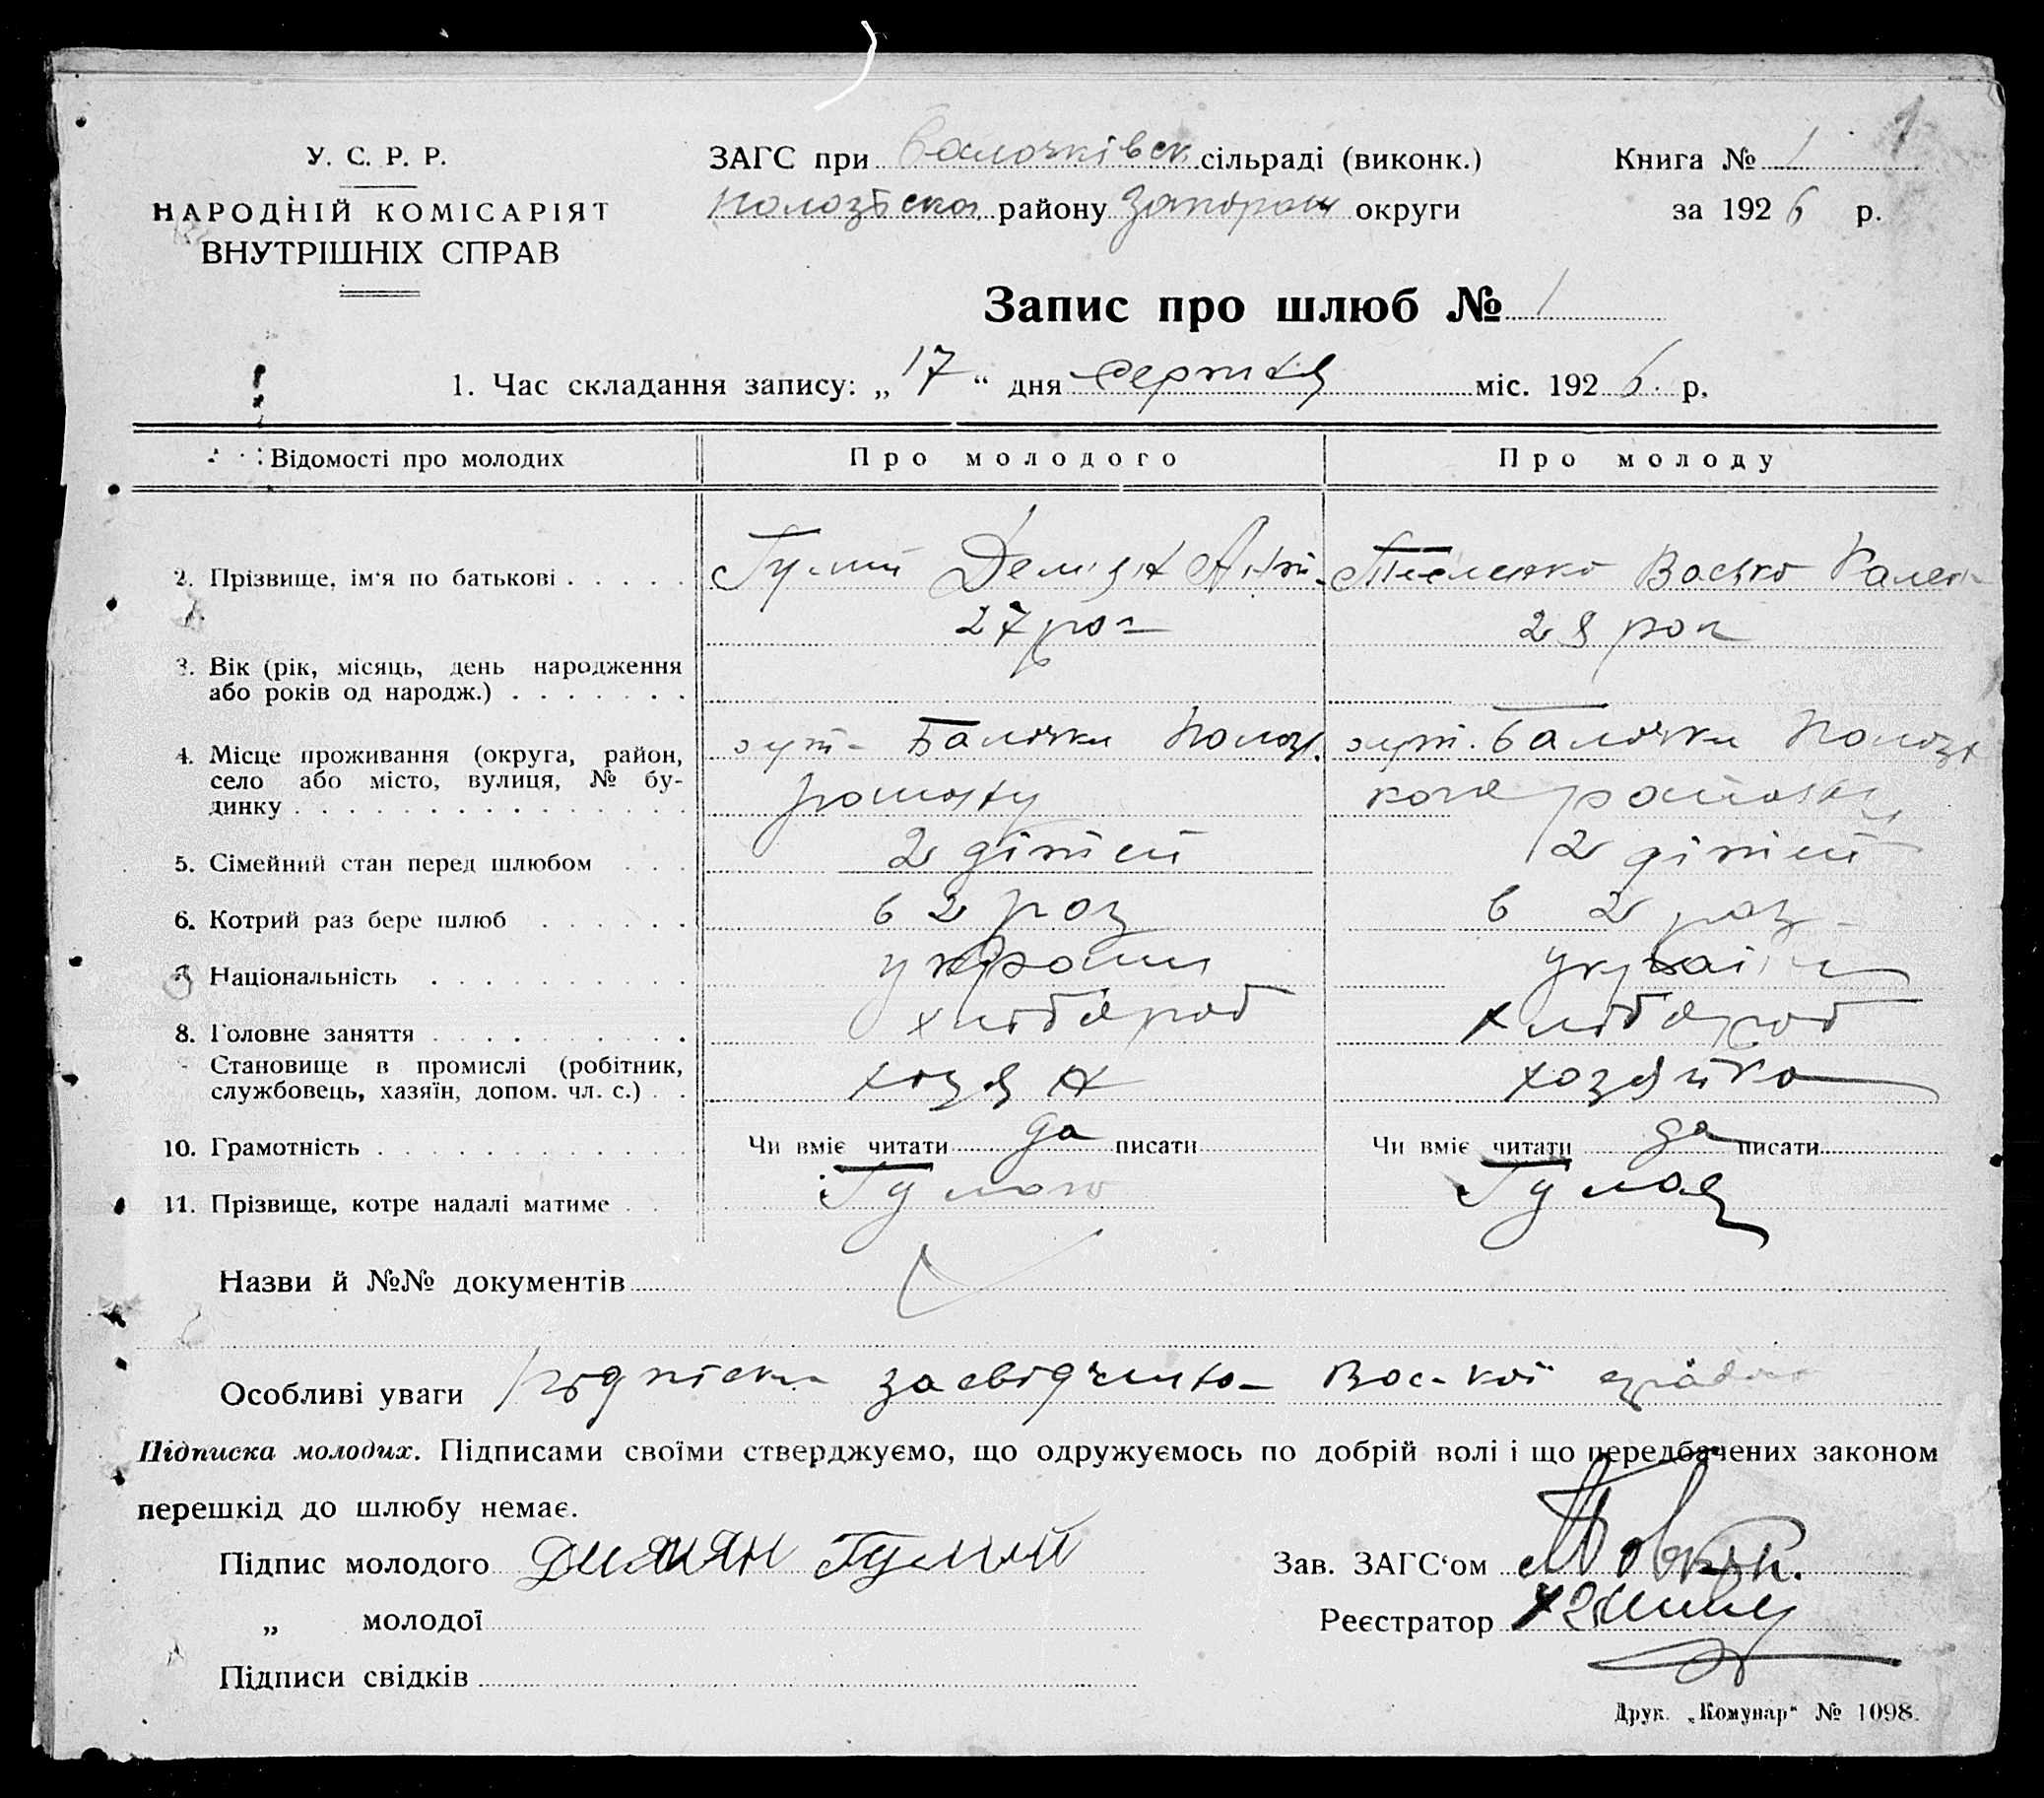 1
У. С. Р. Р.
НАРОДНІЙ КОМІСАРІЯТ
ВНУТРІШНІХ СПРАВ
ЗАГС при Балочківск. сільраді (виконк.)
району Запорож округи
Книга № 1
за 1926 р.
Запис про шлюб № 1
1. Час складання запису: „17“ дня серпня міс. 1926 р.
Відомості про молодих
Про молодого
Про молоду
2. Прізвище, ім'я по батькові . . . . .
Гулий Демʼян Ант-
Василенко
3. Вік (рік, місяць, день народження
або років од народж.) . . . . . . .
27 рок
28 рок
4. Місце проживання (округа, район,
село або місто, вулиця, № бу-
динку . . . . . . . . . . . . . . .
хут- Балочки Полог.
району
хут. Балочки Пологів
кого району
5. Сімейний стан перед шлюбом . . .
2 дітий
2 дітий
6. Котрий раз бере шлюб . . . . . .
в 2 раз
в 2 раз
7. Національність . . . . . . . . . .
украин
україн
8. Головне заняття . . . . . . . . . .
хлібороб
хлібороб
Становище в промислі (робітник,
службовець, хазяїн, допом. чл. с.) . .
хозян
хозяйка
10. Грамотність . . . . . . . . . . . .
Чи вміє читати да писати
Чи вміє читати да писати
11. Прізвище, котре надалі матиме . .
Гулого
Гулая
Назви й №№ документів
Особливі уваги підписки
Підписка молодих. Підписами своїми стверджуємо, що одружуємось по добрій волі і що передбачених законом
перешкід до шлюбу немає.
Підпис молодого Димян Гулий
„ молодої
Підписи свідків
Зав. ЗАГС'ом
Реєстратор
Друк. „Комунар“ № 1098.